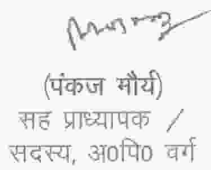 (पंकज मौर्य)
सह प्राध्यापक /
सदस्य, अ०पि० वर्ग